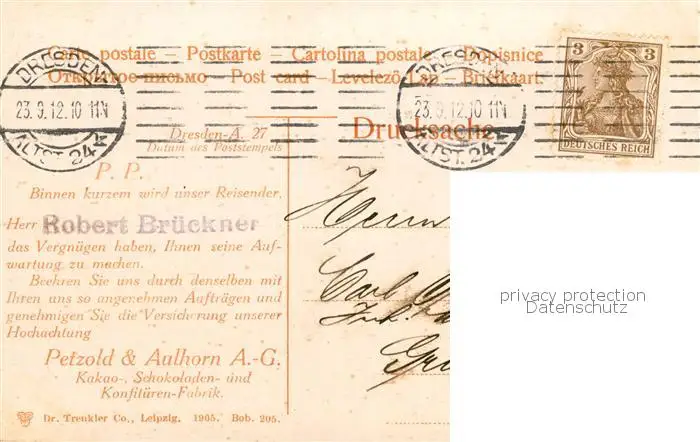 Carte postale – Postkarte – Cartolina postale – Dopisnice
Открытое письмо – Post card – Levelező-Lap – Briefkaart.
DRESDEN
23.9.12.10-11N
ALTST. 24
DRESDEN
23.9.12.10-11N
ALTST. 24
3 3
DEUTSCHES REICH
Drucksache
Dresden-A. 27
Datum des Poststempels
P. P.
Binnen kurzem wird unser Reisender,
Herr Robert Brückner
das Vergnügen haben, Ihnen seine Auf-
wartung zu machen.
Beehren Sie uns durch denselben mit
Ihren uns so angenehmen Aufträgen und
genehmigen Sie die Versicherung unserer
Hochachtung
Petzold & Aulhorn A.-G.
Kakao-, Schokoladen- und
Konfitüren-Fabrik.
Dr. Trenkler Co., Leipzig. 1905. Bob. 205.
Herrn
Carl
privacy protection
Datenschutz